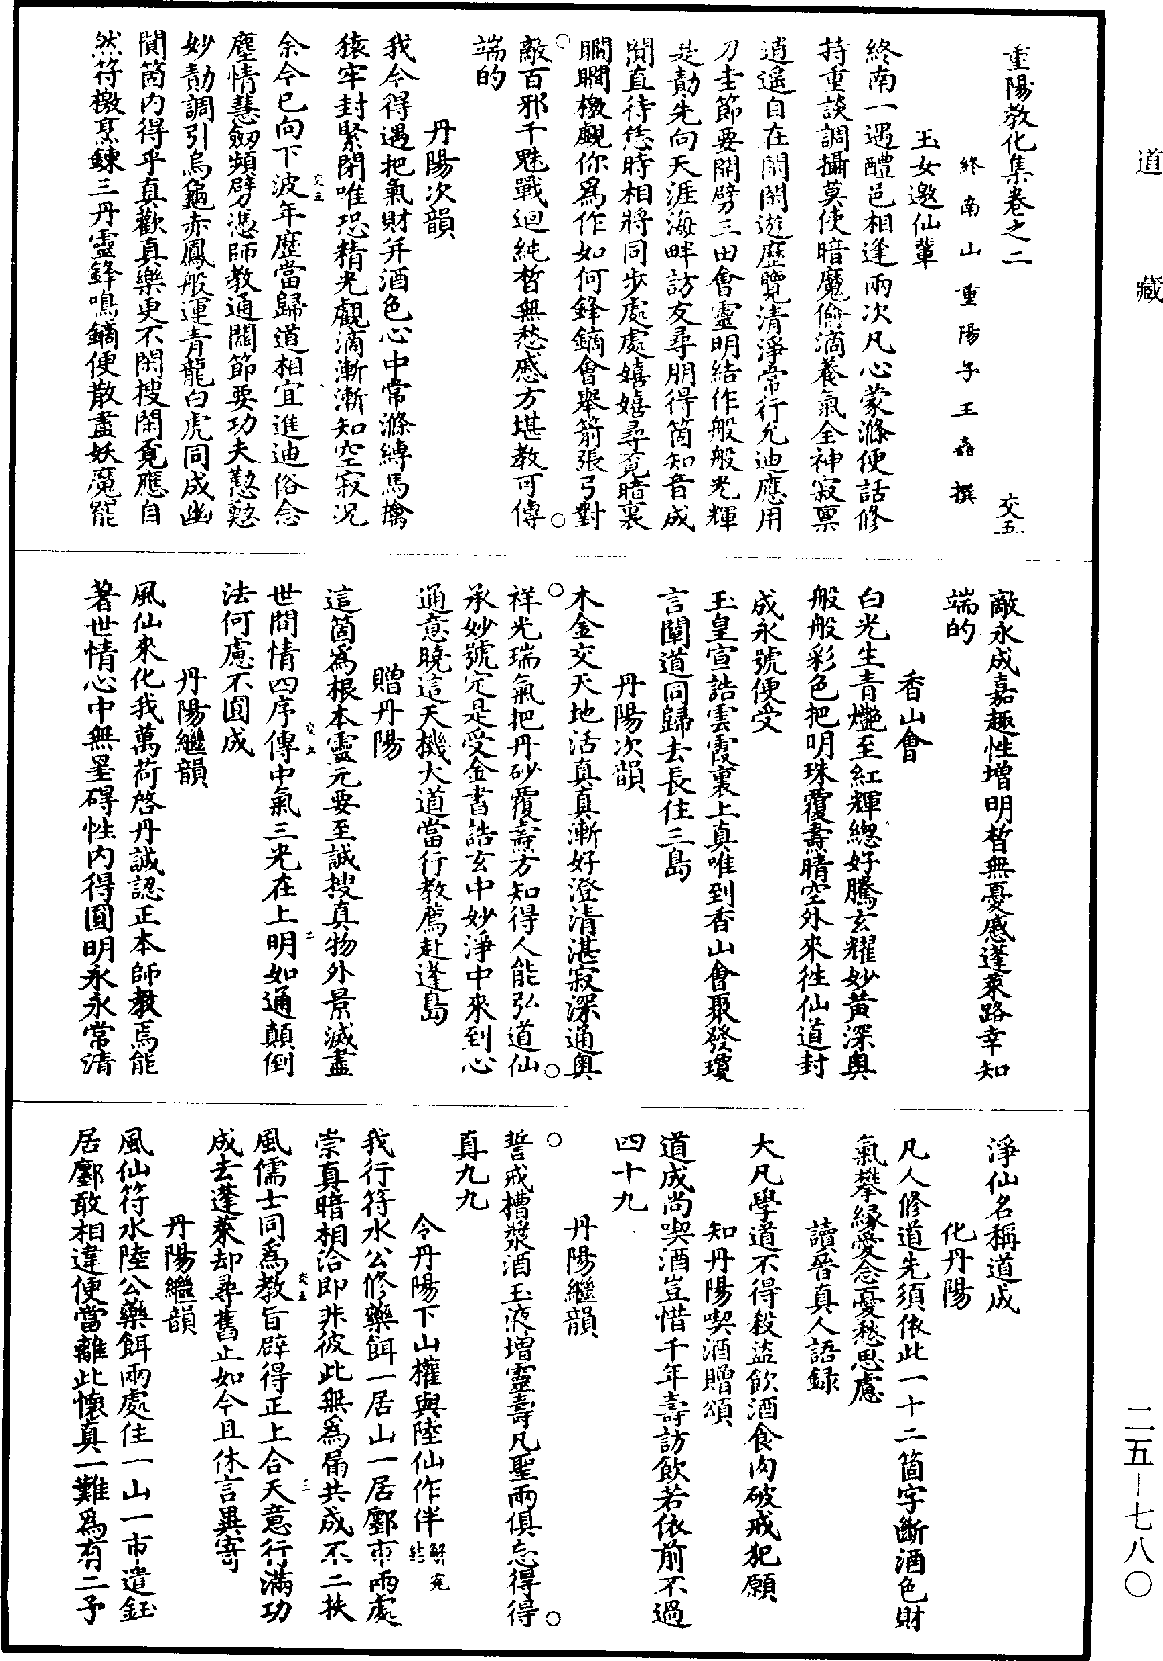 道藏
二五—七八〇
重陽教化集卷之二　交五
終南山重陽子王嚞撰
玉女邀仙輩
終南一遇醴邑相逢兩次凡心蒙滌便話修
持重談調攝莫使暗魔偷滴養氣全神寂稟
逍遙自在閑閑遊歷覽清淨常行允迪應用
刀圭節要開劈三田會靈明結作般般光輝
是勣先向天涯海畔訪友尋朋得箇知音成
閴直待恁時相將同步處處嬉嬉尋覓暗裏
矙矙檄覷你為作如何鋒鏑會舉箭張弓對
敵百邪千魃戰迴純皙無愁慼方堪教可傳
端的
丹陽次韻
我今得遇把氣財并酒色心中常滌縛馬擒
猿牢封緊閉唯恐精光觑滴漸漸知空寂況
余今已向下波年歷當歸道相宜進迪俗念
塵情慧劒頻劈憑師教通關節要功夫懃懃
妙勣調引烏龜赤鳳般運青龍白虎同成幽
閴箇内得乎真歡真樂更不閑搜閑覓應自
然符檄烹鍊三丹靈鋒鳴鏑便散盡妖魔寵
敵永成嘉趣性增明皙無憂慼蓬萊路幸知
端的
香山會
白光生青艷至紅輝總好騰玄耀妙黃深奥
般般彩色把明珠覆燾晴空外來徃仙道封
成永號便受
玉皇宣誥雲霞裏上真唯到香山會聚發瓊
言闡道同歸去長住三島
丹陽次韻
木金交天地活真真漸好澄清湛寂深通奥
祥光瑞氣把丹砂覆燾方知得人能弘道仙
承妙號定是受金書誥玄中妙淨中來到心
通意曉這天機大道當行教薦赴蓬島
贈丹陽
這箇為根本靈元要至誠搜真物外景滅盡
世間情四序傳中氣三光在上明如通顛倒
法何慮不圓成
丹陽繼韻
風仙來化我萬荷啓丹誠認正本師教焉能
著世情心中無罣碍性内得圓明永永常清
淨仙名稱道成
化丹陽
凡人修道先須依此一十二箇字斷酒色財
氣攀緣愛念憂愁思慮
讀晉真人語録
大凡學道不得殺盜飲酒食肉破戒犯願
知丹陽喫酒贈頌
道成尚喫酒豈惜千年壽訪飲若依前不過
四十九
丹陽繼韻
誓戒糟漿酒玉液増靈壽凡聖兩俱忘得得
真九九
令丹陽下山權與陸仙作伴
我行符水公修藥餌一居山一居鄽市兩處
崇真暗相洽即非彼此無為扃共成不二扶
風儒士同為教旨辟得正上合天意行滿功
成去蓬萊却尋舊止如今且休言異寄
丹陽繼韻
風仙符水陸公藥餌兩處住一山一市遣鈺
居鄽敢相違便當離此懷真一難為有二予